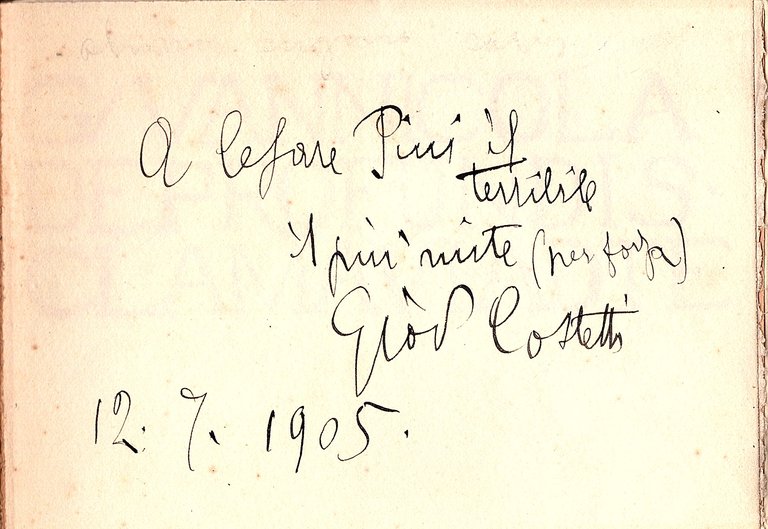 A Cesare Pini il
terribile
il più mite (per forza)
Giov Costetti
12. 7. 1905.